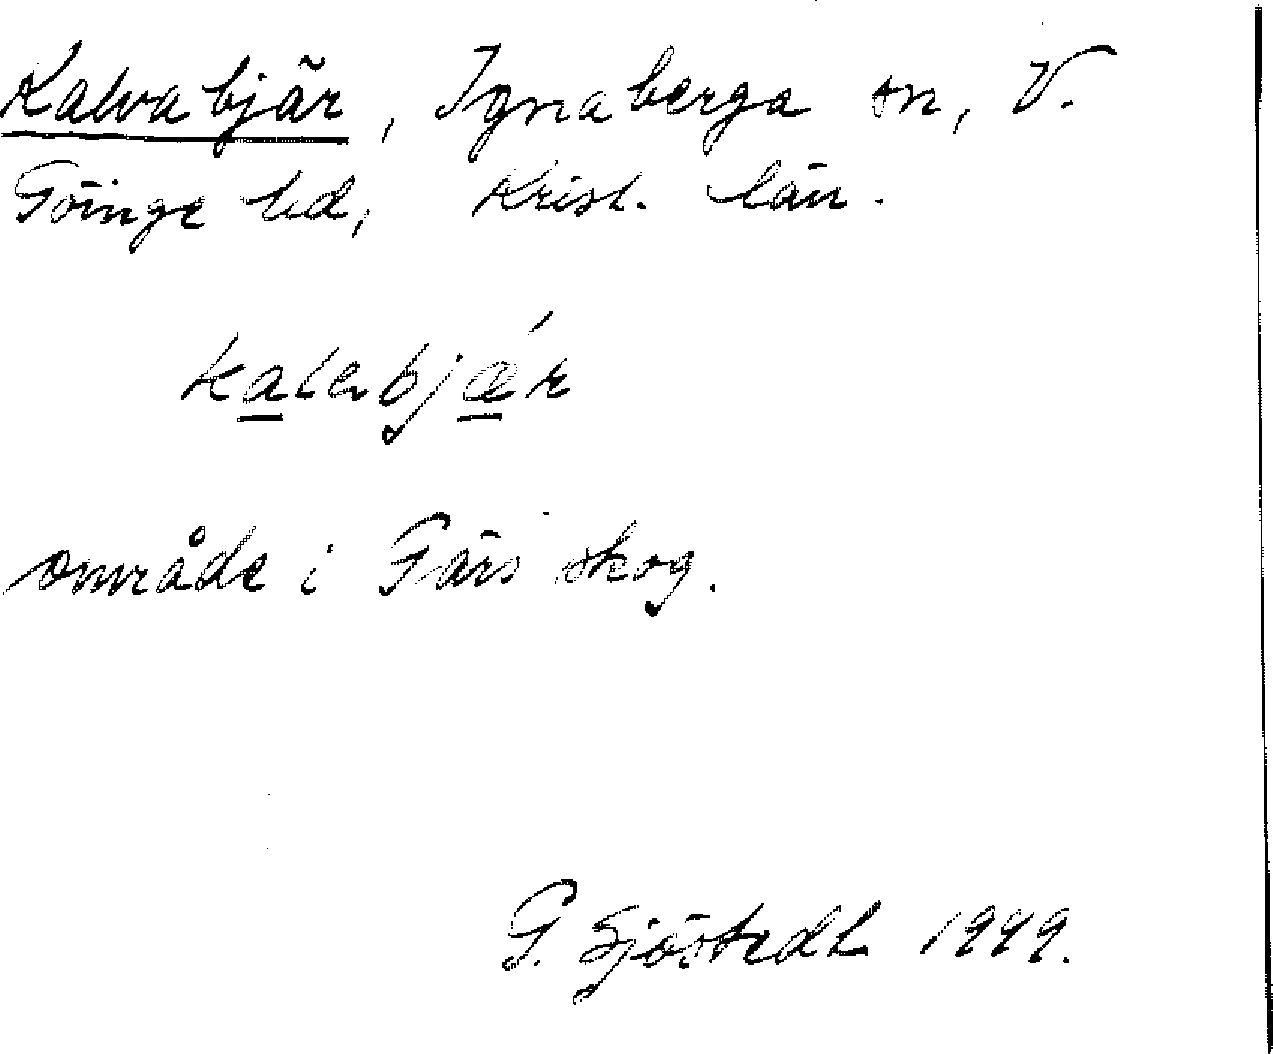 Kalvabjär, Ignaberga sn, V.
Göinge hd, Krist. län.
kalabjǽr
område i Gärs skog.
G. Sjöstedt 1949.